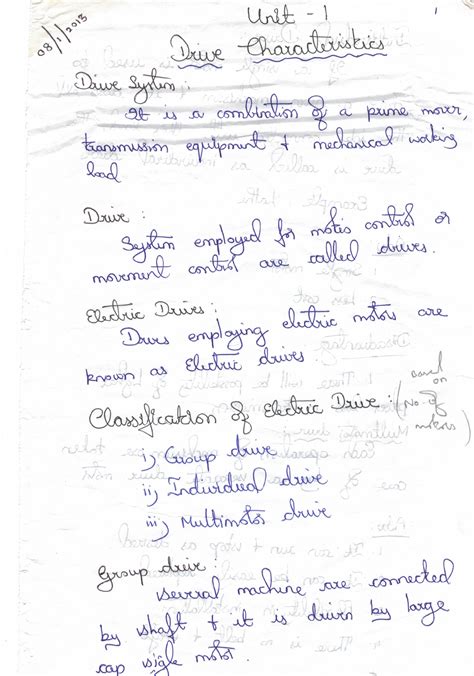 Unit - 1
1
08/1/2013
Drive Characteristics
Drive System :
It is a combination of a prime mover,
transmission equipment + mechanical working
load
Drive :
System employed for motion control or
movement control are called drives.
Electric Drives :
Drives employing electric motors are
known as Electric drives.
Classification of Electric Drive : (based on No. of motors)
i) Group drive
ii) Individual drive
iii) Multimotor drive
Group drive :
several machine are connected
by shaft + it is driven by large
cap sigle motor.